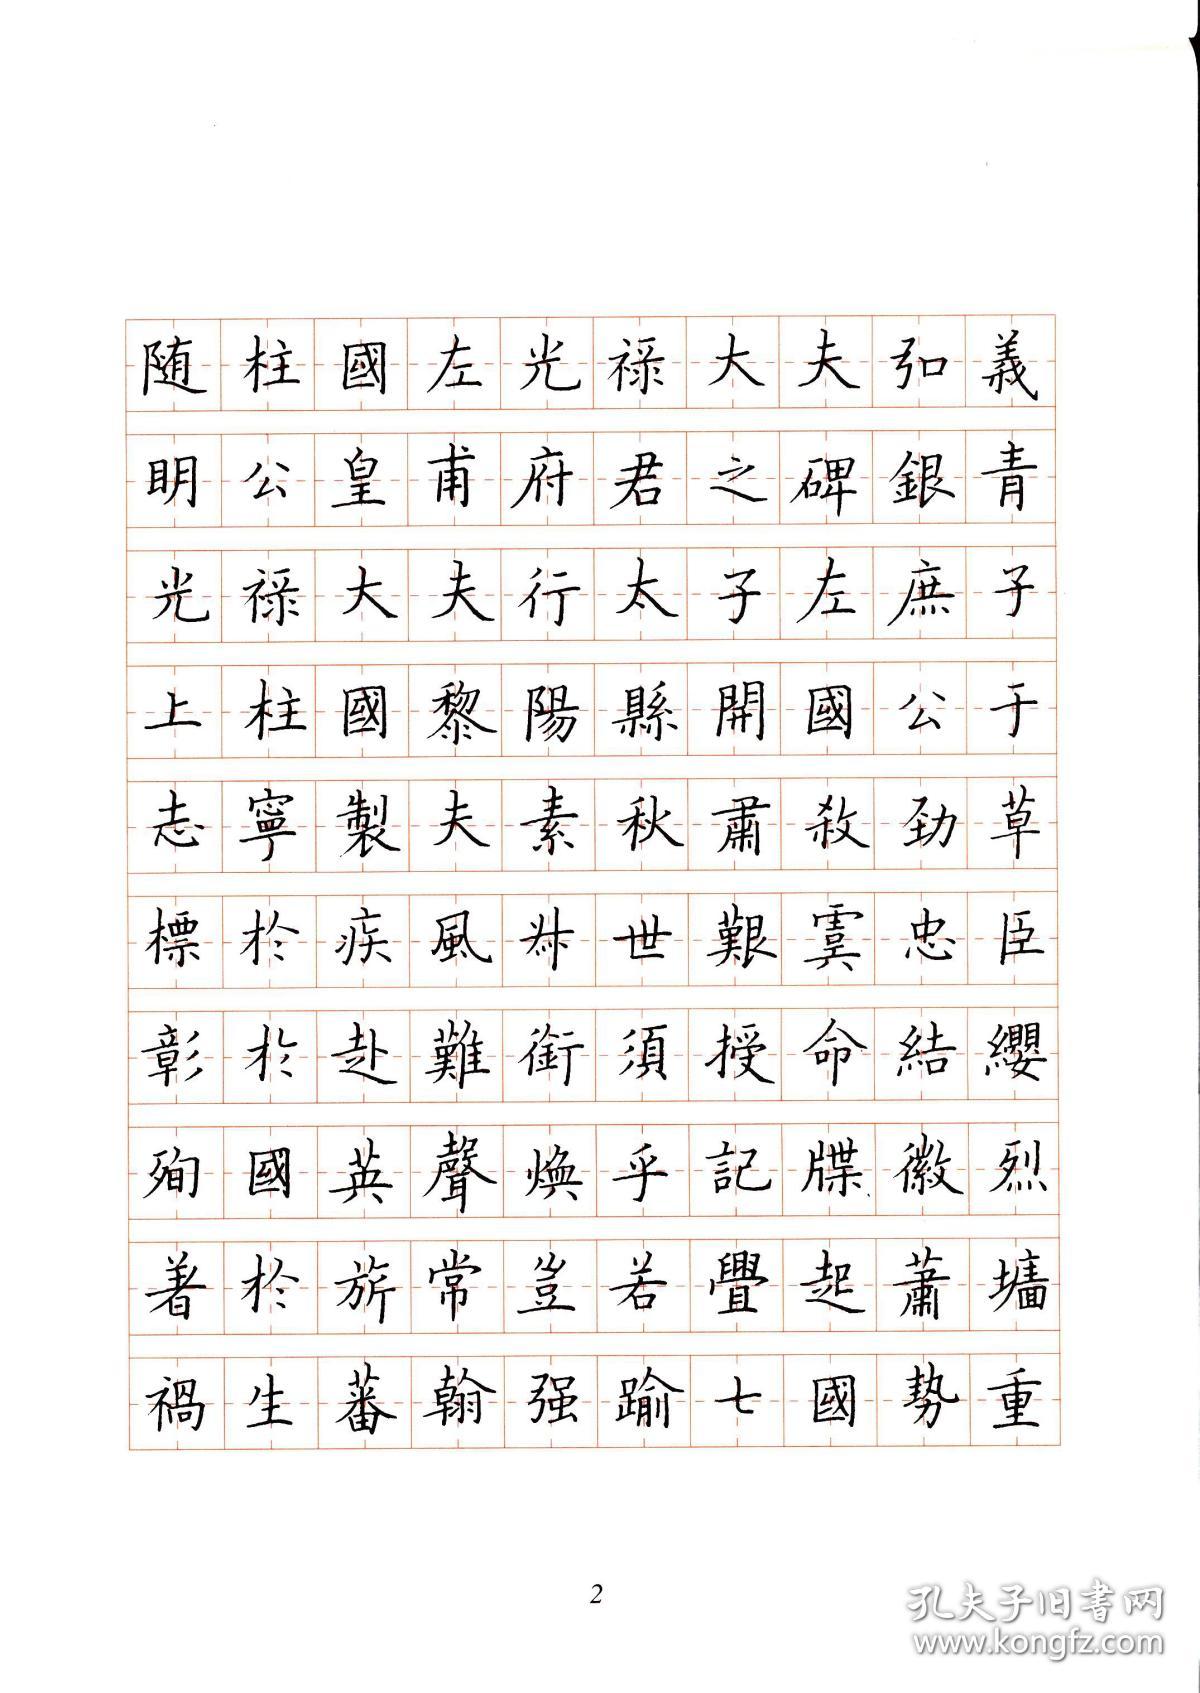 随柱國左光祿大夫弘義
明公皇甫府君之碑銀青
光祿大夫行太子左庶子
上柱國黎陽縣開國公于
志寧製夫素秋肅殺勁草
標於疾風叔世艱虞忠臣
彰於赴難銜須授命結纓
殉國英聲煥乎記牒徽烈
著於旂常豈若釁起蕭墻
禍生蕃翰强踰七國勢重
2
孔夫子旧書网
www.kongfz.com